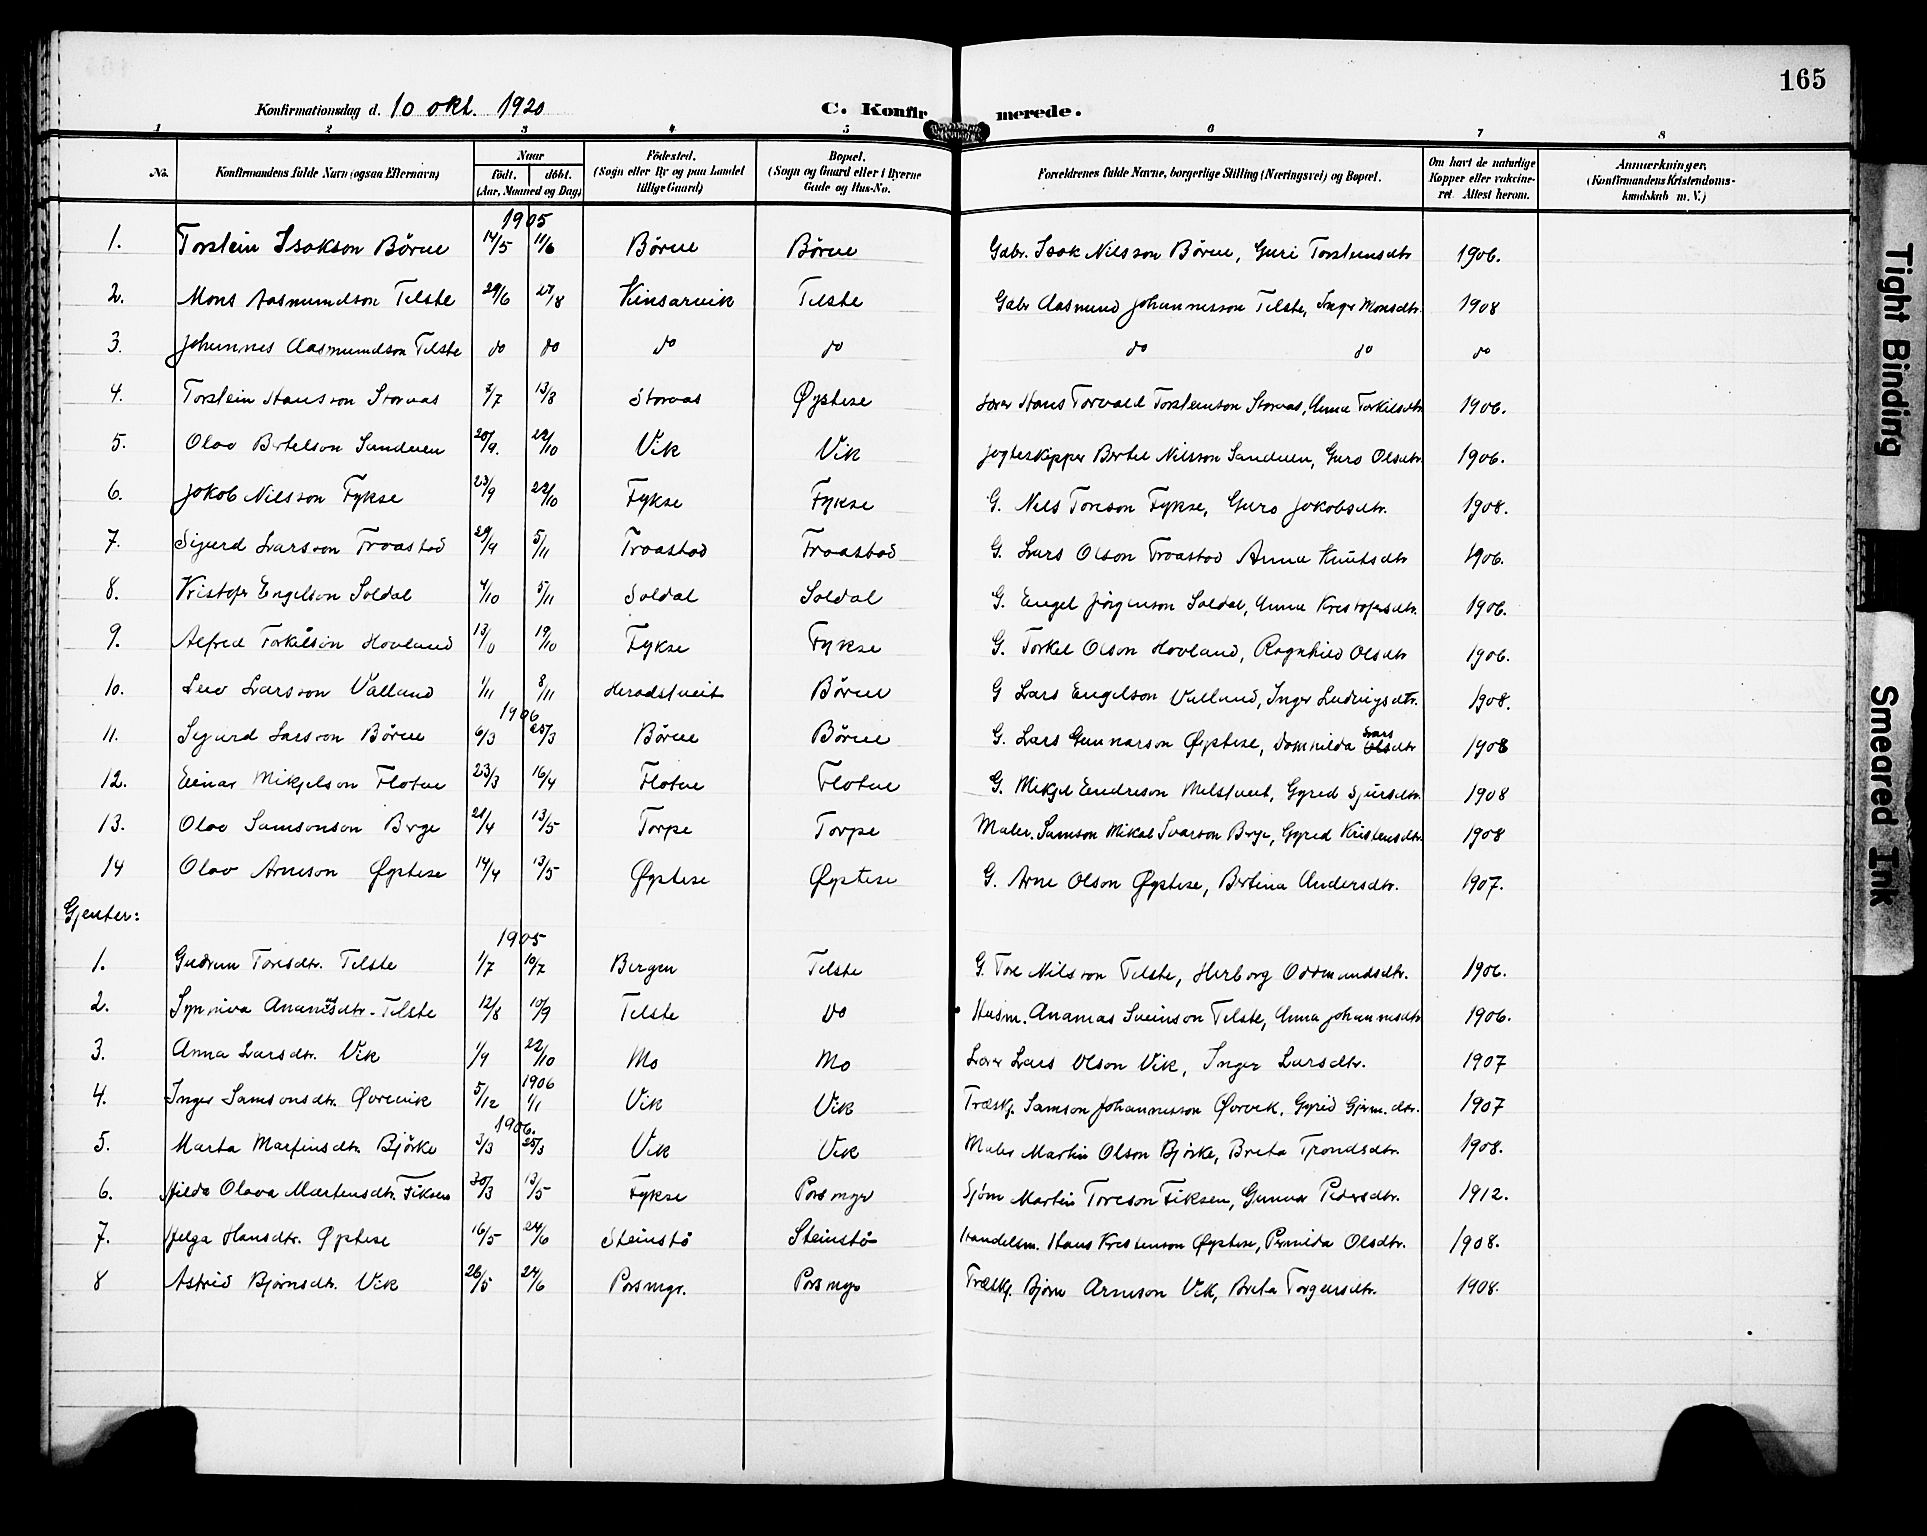 165
Konfirmationsdag d. 10 okt. 1920 C. Konfirmerede.
1 2 3 4 5 6 7 8
No. Konfirmandens fulde Navn (ogsaa Efternavn) Naar født. døbt. (Aar, Maaned og Dag) Fødested. (Sogn eller By og paa Landet tillige Gaard) Bopæl. (Sogn og Gaard eller i Byerne Gade og Hus-No. Forældrenes fulde Navne, borgerlige Stilling (Næringsvei) og Bopæl. Om havt de naturlige Kopper eller vakcineret. Attest herom. Anmærkninger, (Konfirmandens Kristendomskundskab m. V.)
1905
1. Torstein Isakson Börue 14/5 11/6 Börue Börue Gabr. Isak Nilsson Börue, Guri Torsteinsdtr 1906.
2. Mons Aasmundson Telste 29/6 27/8 Kinsarvik Telste Gabr Aasmund Johannesson Telste, Inger Monsdtr. 1908
3. Johannes Aasmundson Telste do do do do do do do
4. Torstein Hansson Storaas 7/7 13/8 Storaas Øystese Lærer Hans Torvald Torsteinson Storaas, Anna Torkilsdtr 1906.
5. Olav Bertelson Sandven 20/9. 22/10 Vik Vik Jagteskipper Bertel Nilsson Sandven, Guro Olsdtr. 1906.
6. Jakob Nilsson Fykse 23/9 22/10 Fykse Fykse G. Nils Toreson Fykse, Guro Jakobsdtr. 1908.
7. Sigurd Larsson Traastad 29/9 5/11 Traastad Traastad G. Lars Olson Traastad Anna Knutsdtr 1906.
8. Kristofer Engelson Soldal 4/10 5/11 Soldal Soldal G. Engel Jörgenson Soldal, Anna Kristofersdtr. 1906.
9. Alfred Torkilson Hovland 13/0 19/10 Fykse Fykse G. Torkel Olson Hovland, Ragnhild Olsdtr 1906.
10. Larsson Valland 1/11 8/11 Heradstveit Börue G Lars Engelson Valland, Inger Ludvigsdtr. 1908.
1906
11. Sigurd Larsson Börue 6/3 25/3 Börue Börue G. Lars Gunnarson Øystese, Domhilda Lars Olsdtr 1908
12. Einar Mikjelson Flotve 23/3 16/4 Flotve Flotve G. Mikjel Endreson Melstveit, Gyrid Sjursdtr. 1908
13. Olav Samsonson Berge 21/4 13/5 Torpe Torpe Maler. Samson Mikal Ivarson Berge, Gyrid Kristensdtr. 1908
14 Olav Arneson Øystese 14/4 13/5 Øystese Øystese G. Arne Olson Øystese, Bertina Andersdtr. 1907.
Gjenter:
1905
1. Gudrun Toresdtr. Telste 1/7 10/7 Bergen Telste G. Tore Nilsson Telste, Herborg Oddmundsdtr. 1906.
2. Synniva Ananiasdtr. Telste 12/8 10/9 Telste do Husm. Ananias Sveinson Telste, Anna Johannesdtr 1906.
3. Anna Larsdtr. Vik 1/9 22/10 Mo Mo Lærer Lars Olson Vik, Inger Larsdtr. 1907
1906
4. Inger Samsonsdtr. Øvrevik 5/12 1/1 Vik Vik Træskj. Samson Johannesson Øvrevik, Gyrid Gjerm.dtr. 1907
1906.
5. Marta Martinsdtr. Björke 3/3 25/3 Vik Vik Maler Martin Olson Björke, Brita Trondsdtr. 1908.
6. Hilda Olava Martensdtr. Fiksen 30/3 13/5 Fykse Porsmyr Sjøm Martin Toreson Fiksen, Gunvor Pedersdtr. 1912.
7. Helga Hansdtr. Øystese 16/5 24/6 Steinstö Steinstö Handelsm. Hans Kristenson Øystese, Pernilda Olsdtr. 1908.
8 Astrid Bjørnsdtr. Vik 26/5 24/6 Porsmyr. Porsmyr Træskj. Bjørn Arneson Vik, Brita Torgersdtr. 1908.
Tight Binding
Smeared Ink